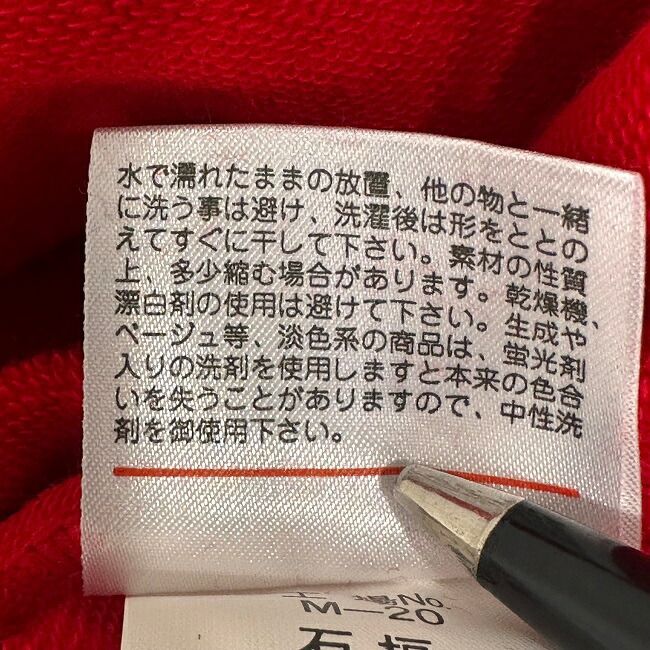 水で濡れたままの放置、他の物と一緒
に洗う事は避け、洗濯後は形をととの
えてすぐに干して下さい。素材の性質
上、多少縮む場合があります。乾燥機、
漂白剤の使用は避けて下さい。生成や
ベージュ等、淡色系の商品は、蛍光剤
入りの洗剤を使用しますと本来の色合
いを失うことがありますので、中性洗
剤を御使用下さい。